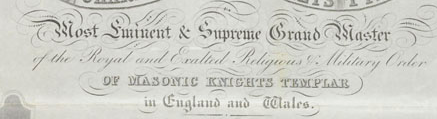 Most Eminent & Supreme Grand Master
of the Royal and Exalted Religious & Military Order
OF MASONIC KNIGHTS TEMPLAR
in England and Wales.